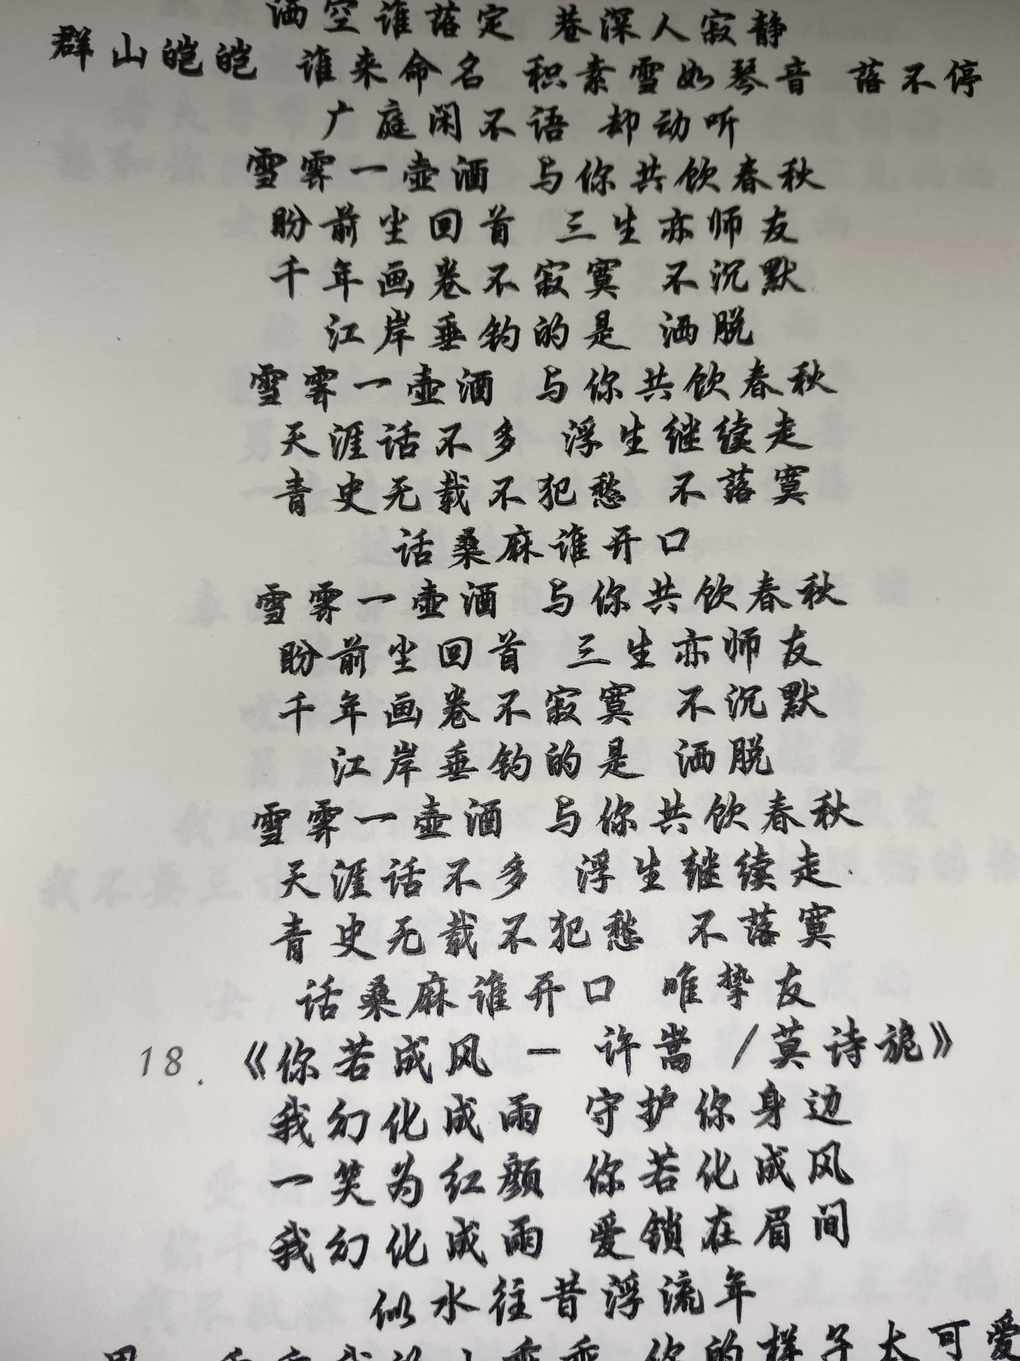 洒空谁落定 巷深人寂静
群山皑皑 谁来命名 积素雪如琴音 落不停
广庭闲不语 却动听
雪霁一壶酒 与你共饮春秋
盼前尘回首 三生亦师友
千年画卷不寂寞 不沉默
江岸垂钓的是 洒脱
雪霁一壶酒 与你共饮春秋
天涯话不多 浮生继续走
青史无载不犯愁 不落寞
话桑麻谁开口
雪霁一壶酒 与你共饮春秋
盼前尘回首 三生亦师友
千年画卷不寂寞 不沉默
江岸垂钓的是 洒脱
雪霁一壶酒 与你共饮春秋
天涯话不多 浮生继续走
青史无载不犯愁 不落寞
话桑麻谁开口 唯挚友
18. 《你若成风 - 许嵩 /莫诗旎》
我幻化成雨 守护你身边
一笑为红颜 你若化成风
我幻化成雨 爱锁在眉间
似水往昔浮流年
你的样子太可爱